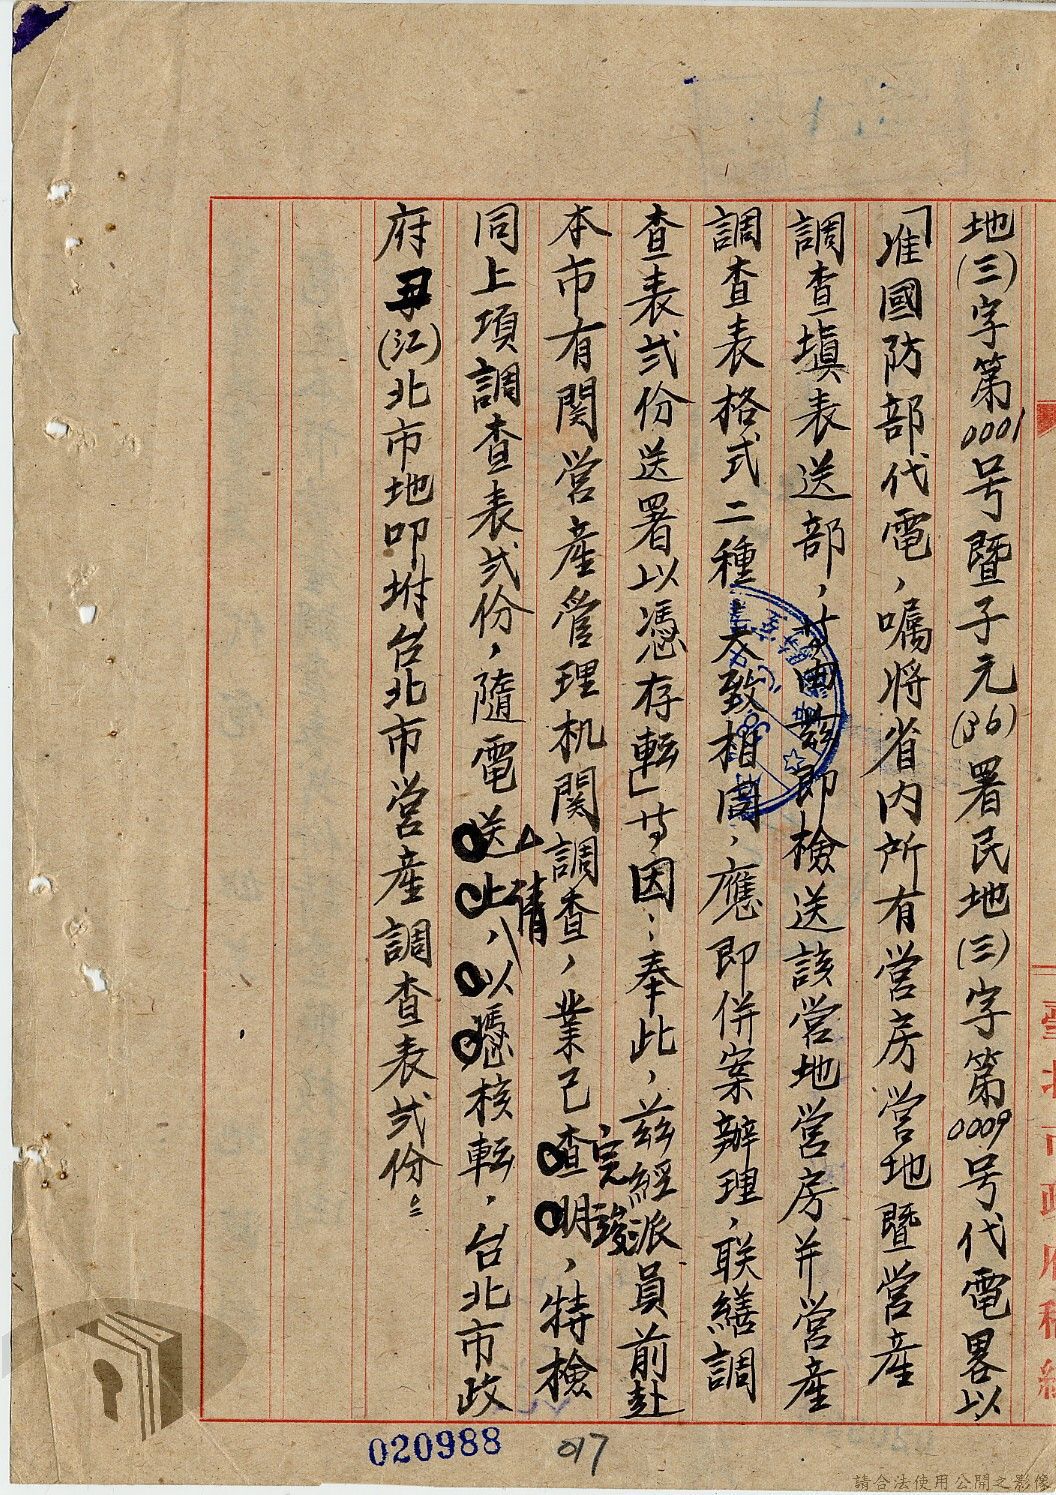 地(三)字第0001号暨子元(36)署民地(三)字第0009号代電畧以
「准國防部代電，嘱将省内所有営房営地暨営産
調查塡表送部，等由茲即檢送該営地営房并営産
調查表格式二種大致相同，應即併案辦理，联繕調
查表弍份送署以憑存轉」等因；奉此，茲經派員前赴
本市有関営産管理机関調查，業已查明完竣，特檢
同上項調查表弍份，隨電送上，倩以憑核転，台北市政
府丑(江)北市地叩坿台北市営産調查表弍份
臺北市政府稿紙
020988
017
請合法使用公開之影像